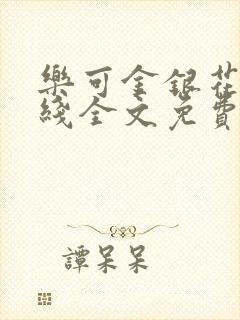 樂可金銀花
綫全文免費
譚呆呆